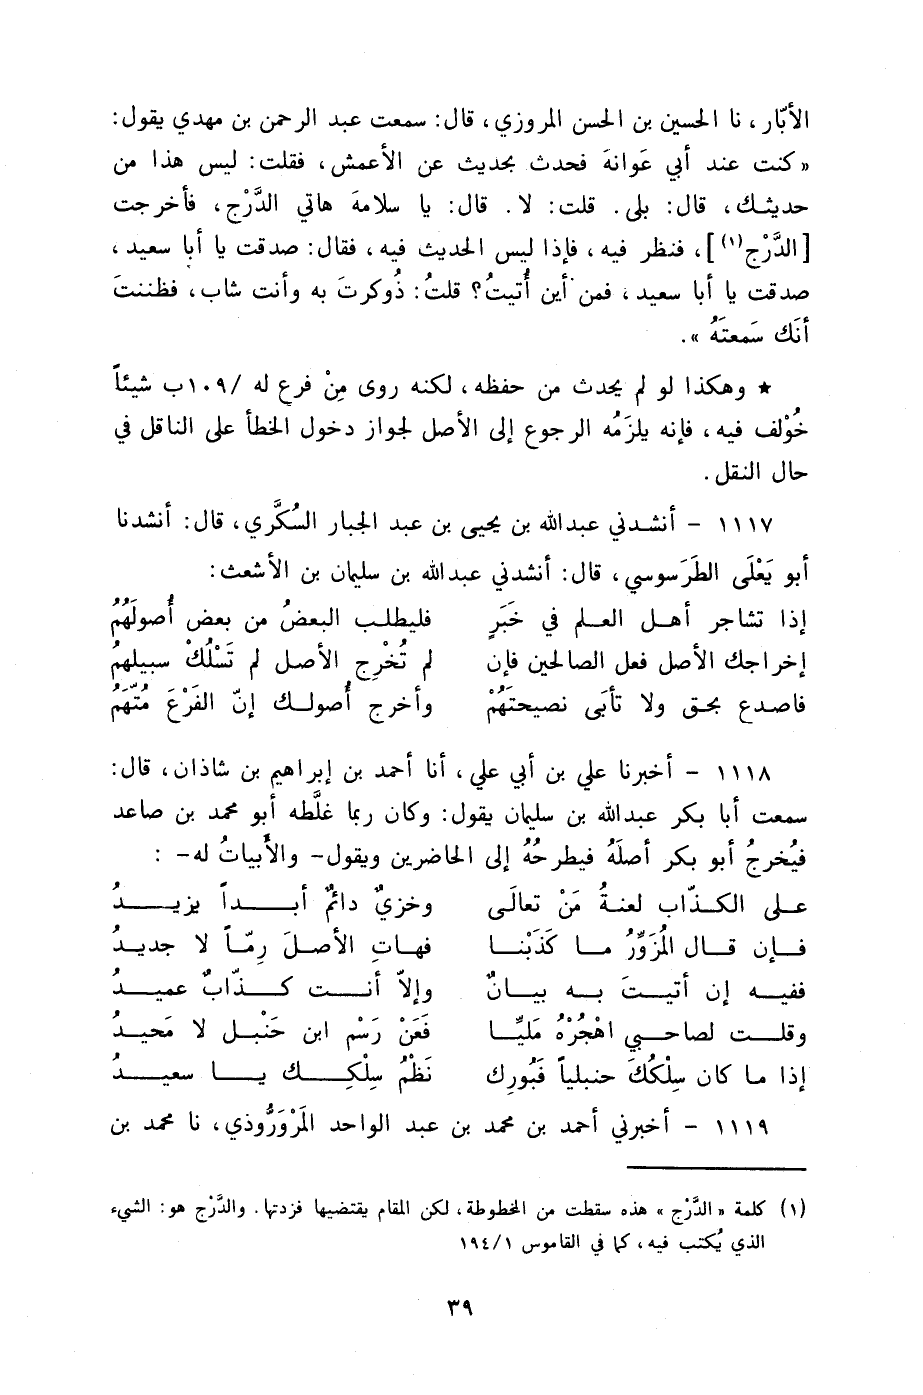 الأبّار، نا الحسين بن الحسن المروزي، قال: سمعت عبد الرحمن بن مهدي يقول:
«كنت عند أبي عَوانةَ فحدث بحديث عن الأعمش، فقلت: ليس هذا من
حديثك، قال: بلى. قلت: لا. قال: يا سلامةَ هاتي الدَّرْج، فأخرجت
[الدَّرْج(١)]، فنظر فيه، فإذا ليس الحديث فيه، فقال: صدقت يا أبا سعيد،
صدقت يا أبا سعيد، فمن أين أُتيتُ؟ قلتُ: ذُوكرتَ به وأنت شاب، فظننتَ
أنَك سَمعتَهُ».
★ وهكذا لو لم يحدث من حفظه، لكنه روى مِنْ فرع له /١٠٩ب شيئاً
خُوْلف فيه، فإنه يلزَمُه الرجوع إلى الأصل لجواز دخول الخطأ على الناقل في
حال النقل.
١١١٧ - أنشدني عبدالله بن يحيى بن عبد الجبار السُكَّري، قال: أنشدنا
أبو يَعْلَى الطَرَسوسي، قال: أنشدني عبدالله بن سليمان بن الأشعث:
إذا تشاجر أهل العلم في خَبَرٍ فليطلب البعضُ من بعض أُصولَهُمُ
إخراجك الأصل فعل الصالحين فإن لم تُخْرِج الأصل لم تَسْلُكْ سبيلهمُ
فاصدع بحق ولا تأبَى نصيحتَهُمْ وأخرج أُصولك إنّ الفَرْعَ مُتَّهَمُ
١١١٨ - أخبرنا علي بن أبي علي، أنا أحمد بن إبراهيم بن شاذان، قال:
سمعت أبا بكر عبدالله بن سليمان يقول: وكان ربما غلَّطه أبو محمد بن صاعد
فيُخرجُ أبو بكر أصلَهُ فيطرحُهُ إلى الحاضرين ويقول- والأبياتُ له- :
على الكذّاب لعنةُ مَنْ تعالَى وخزيٌ دائمٌ أبداً يزيدُ
فإن قال المُزَوِّرُ ما كَذَبْنا فهاتِ الأصلَ رِمّاً لا جديدُ
ففيه إن أتيتَ به بيانٌ وإلاّ أنت كذّابٌ عميدُ
وقلت لصاحبي اهْجُرْهُ مَليّا فَعَنْ رَسْم ابن حَنْبل لا مَحيدُ
إذا ما كان سِلْكُكَ حنبلياً فَبُورك نَظْمُ سِلْكِك يا سعيدُ
١١١٩ - أخبرني أحمد بن محمد بن عبد الواحد المَرْوَرُّوذي، نا محمد بن
(١) كلمة «الدَّرْج» هذه سقطت من المخطوطة، لكن المقام يقتضيها فزدتها. والدَّرْج هو: الشيء
الذي يُكتب فيه، كما في القاموس ١٩٤/١
٣٩